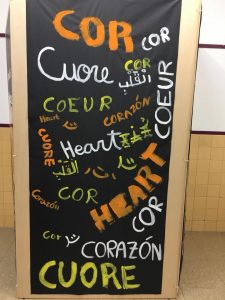 COR
COR
Cuore
COR
اَلْقَلْب
COEUR
COEUR
Heart
CORAZÓN
CUORE
Heart
اَلْقَلْب
HEART
Corazón
COR
COR
Cor
CORAZÓN
CUORE